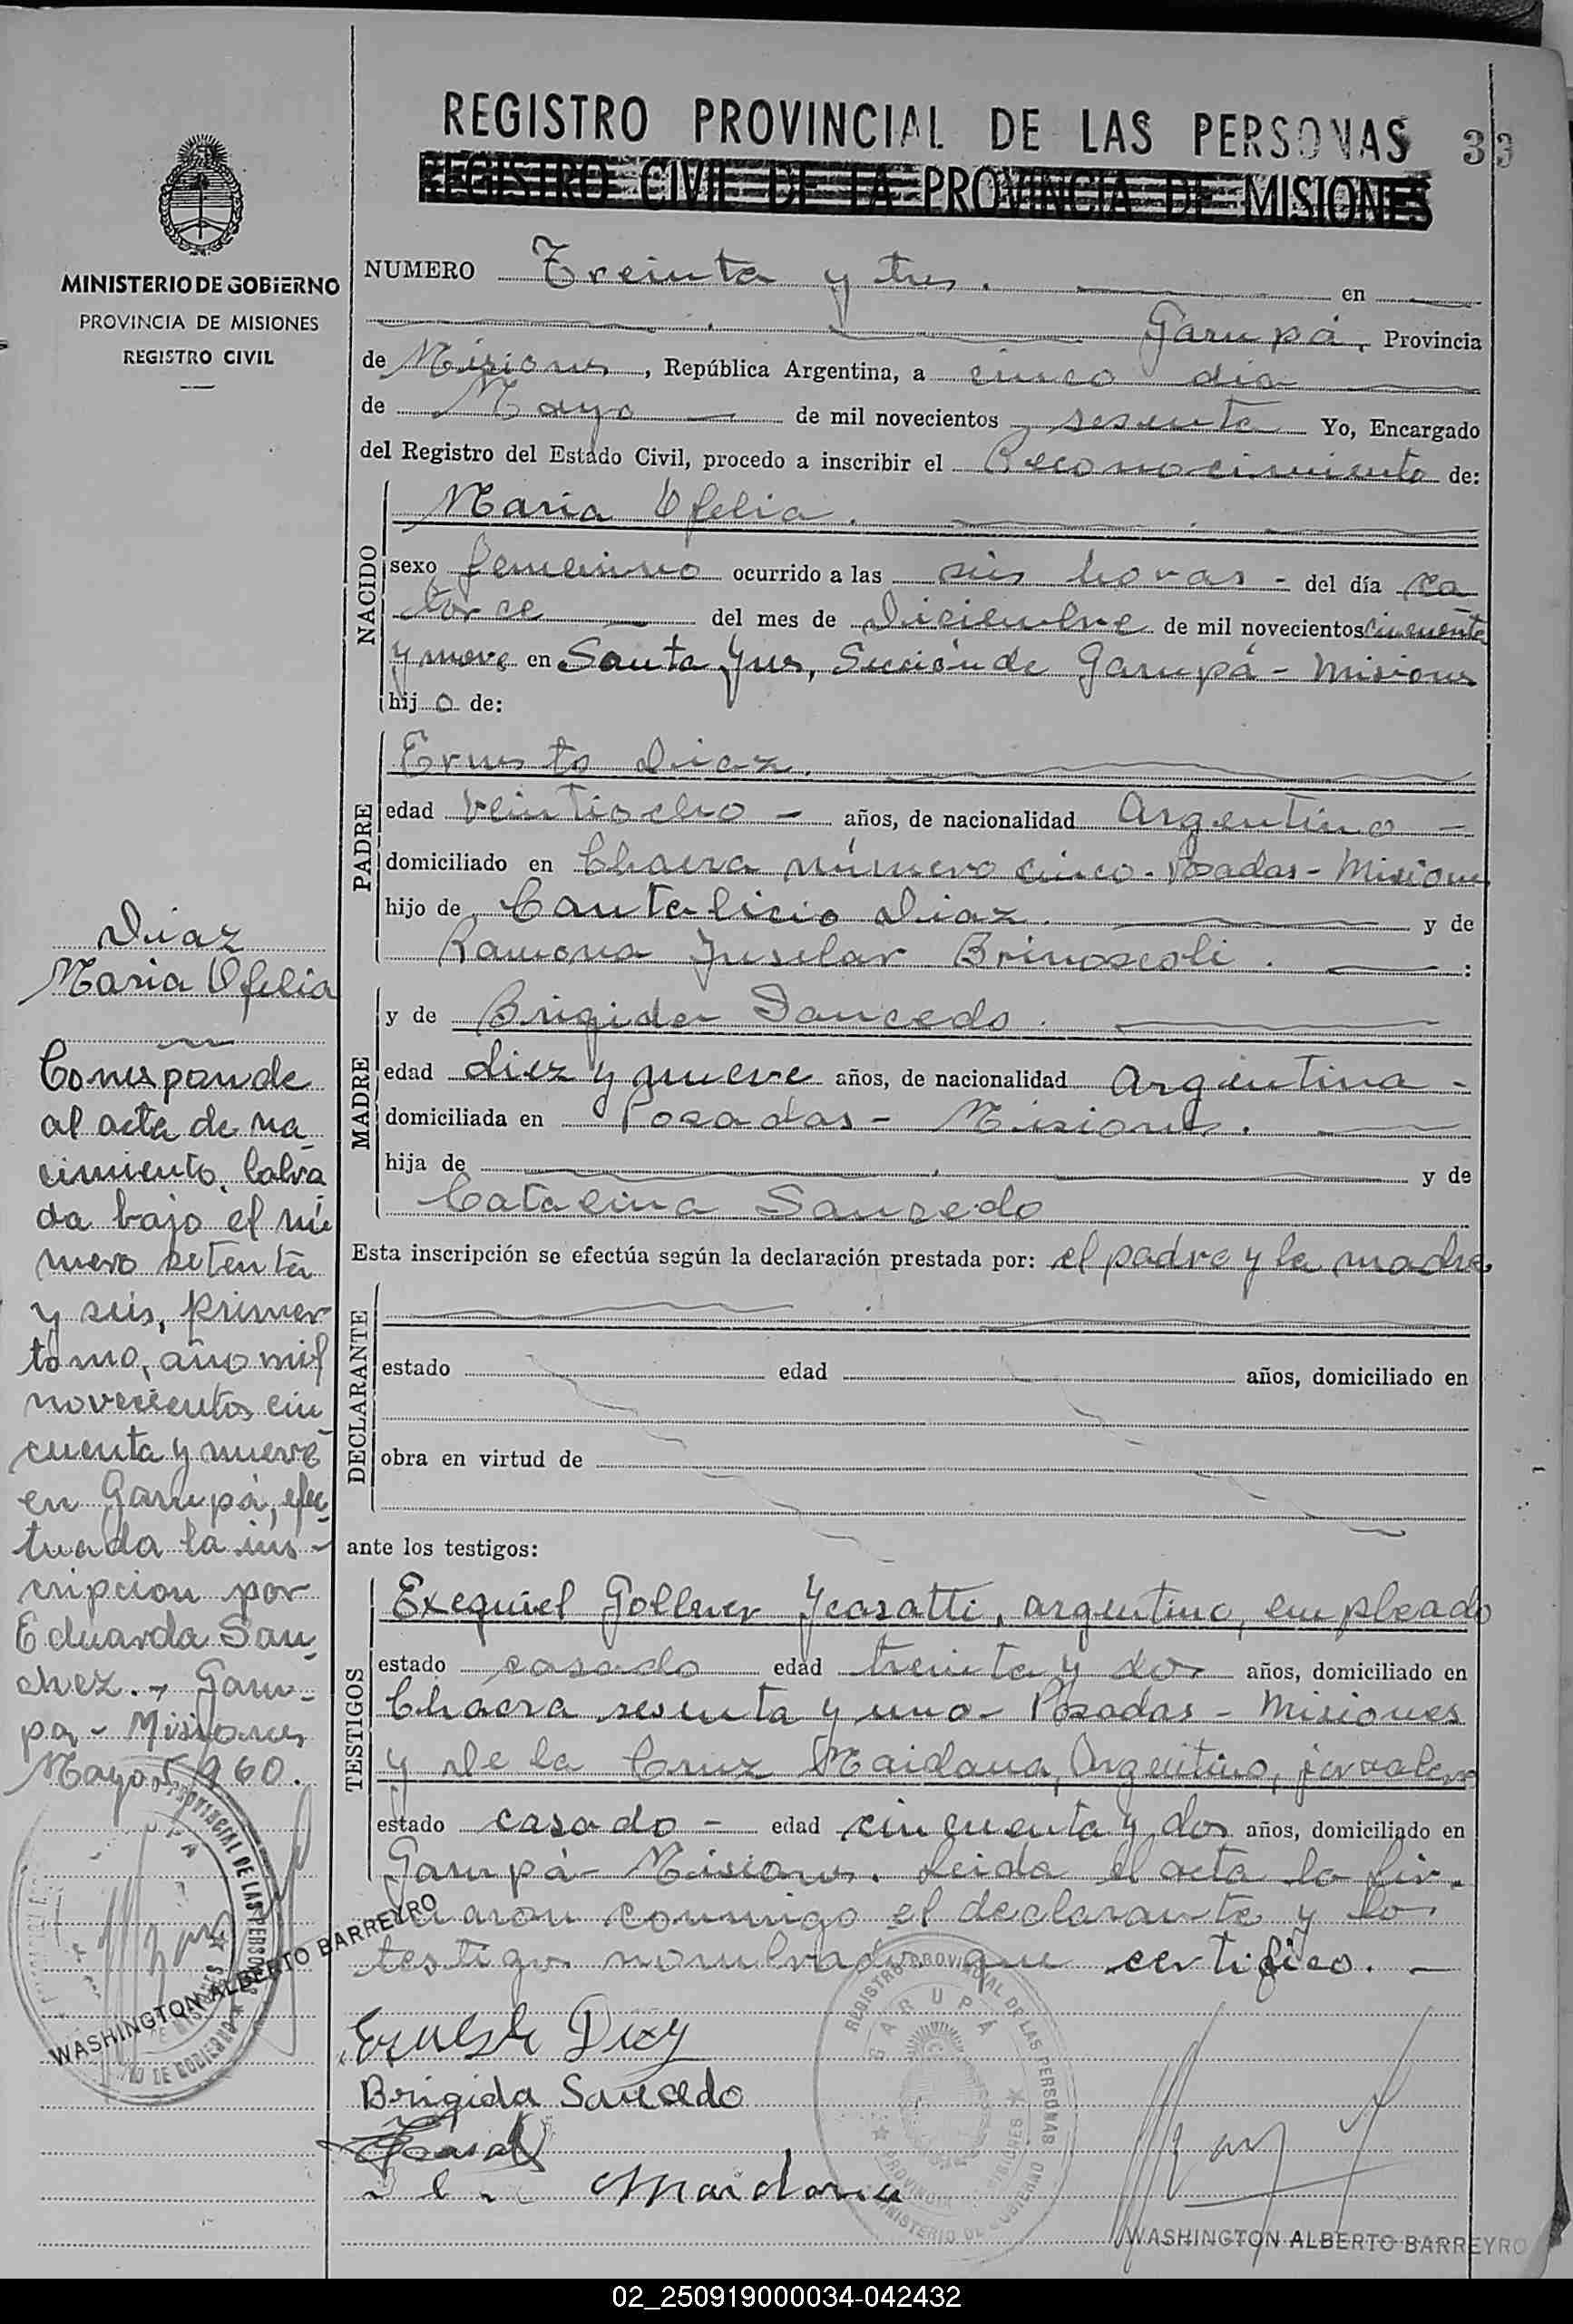 REGISTRO PROVINCIAL DE LAS PERSONAS 33
REGISTRO CIVIL DE LA PROVINCIA DE MISIONES
MINISTERIO DE GOBIERNO
PROVINCIA DE MISIONES
REGISTRO CIVIL
NUMERO Treinta y tres. en
Garupá, Provincia
de Misiones, República Argentina, a cinco dia
de Mayo de mil novecientos sesenta Yo, Encargado
del Registro del Estado Civil, procedo a inscribir el Reconocimiento de:
NACIDO
Maria Ofelia.
sexo femenino ocurrido a las seis horas - del día ca
torce del mes de Diciembre de mil novecientos cincuenta
y nueve en Santa Ines, Sección de Garupá - Misiones
hij a de:
PADRE
Ernesto Diaz.
edad veintiocho - años, de nacionalidad Argentino -
domiciliado en Chacra número cinco - Posadas - Misiones
hijo de Cantalicio Diaz. y de
Ramona
MADRE
y de Brigida Saucedo.
edad diez y nueve años, de nacionalidad Argentina -
domiciliada en Posadas - Misiones.
hija de y de
Catalina Saucedo
Esta inscripción se efectúa según la declaración prestada por: el padre y la madre
DECLARANTE
estado edad años, domiciliado en
obra en virtud de
ante los testigos:
TESTIGOS
Exequiel Gollner argentino, empleado
estado casado edad treinta y dos años, domiciliado en
Chacra sesenta y uno - Posadas - Misiones
y De la Cruz Maidana, Argentino, jornalero
estado casado - edad cincuenta y dos años, domiciliado en
Garupá - Misiones. Leida el acta la fir-
maron conmigo el declarante y los
testigos nombrados que certifico. -
Diaz
Maria Ofelia
Corresponde
al acta de na
cimiento, labra
da bajo el nú
mero setenta
y seis, primer
tomo, año mil
novecientos cin
cuenta y nueve
en Garupá, efec
tuada la ins-
cripcion por
Eduarda San
chez. - Garu-
pa - Misiones
Mayo 5 1960.
WASHINGTON ALBERTO BARREYRO
Ernesto Diaz
Brigida Saucedo
Maidana
REGISTRO PROVINCIAL DE LAS PERSONAS
GARUPÁ
PROVINCIA MISIONES
MINISTERIO DE GOBIERNO
WASHINGTON ALBERTO BARREYRO
02_250919000034-042432